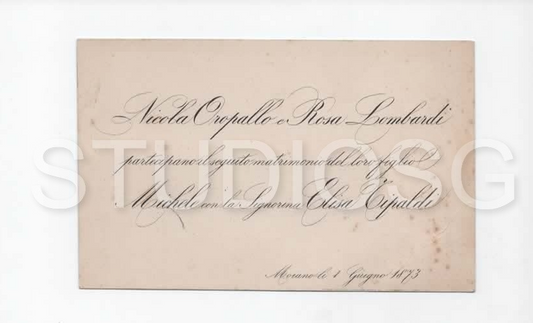 Nicola Oropallo e Rosa Lombardi
partecipano il seguito matrimonio del loro figlio
Michele con la Signorina Elisa Tipaldi
STUDIOSG
Moiano le 1 Giugno 1873